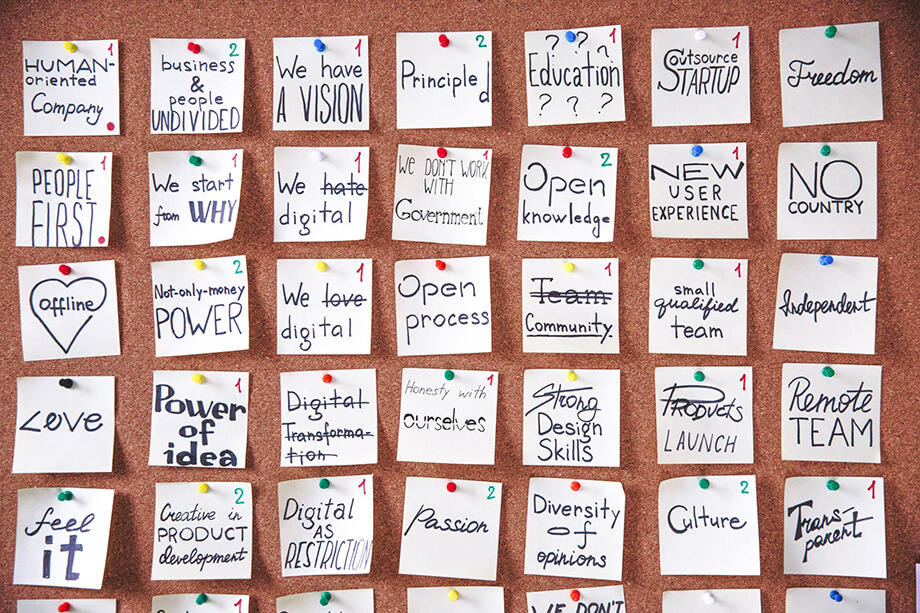 1
HUMAN-
oriented
Company
2
business
&
people
UNDIVIDED
1
We have
A VISION
2
Principled
1
? ?
Education
? ? ?
1
Outsource
STARTUP
Freedom
1
PEOPLE
FIRST
1
We start
from WHY
1
We hate
digital
1
We DON'T WORK
WITH
Government
2
Open
knowledge
1
NEW
USER
EXPERIENCE
NO
COUNTRY
offline
2
Not-only-money
POWER
1
We love
digital
Open
process
1
Team
Community
1
small
qualified
team
Independent
Love
1
Power
of
idea
Digital
Transforma-
tion
1
Honesty with
ourselves
Strong
Design
Skills
1
PRODUCTS
LAUNCH
Remote
TEAM
feel
it
2
Creative in
PRODUCT
development
1
Digital
AS
RESTRICTION
2
Passion
Diversity
of
opinions
2
Culture
1
Trans-
parent
1
WE DON'T